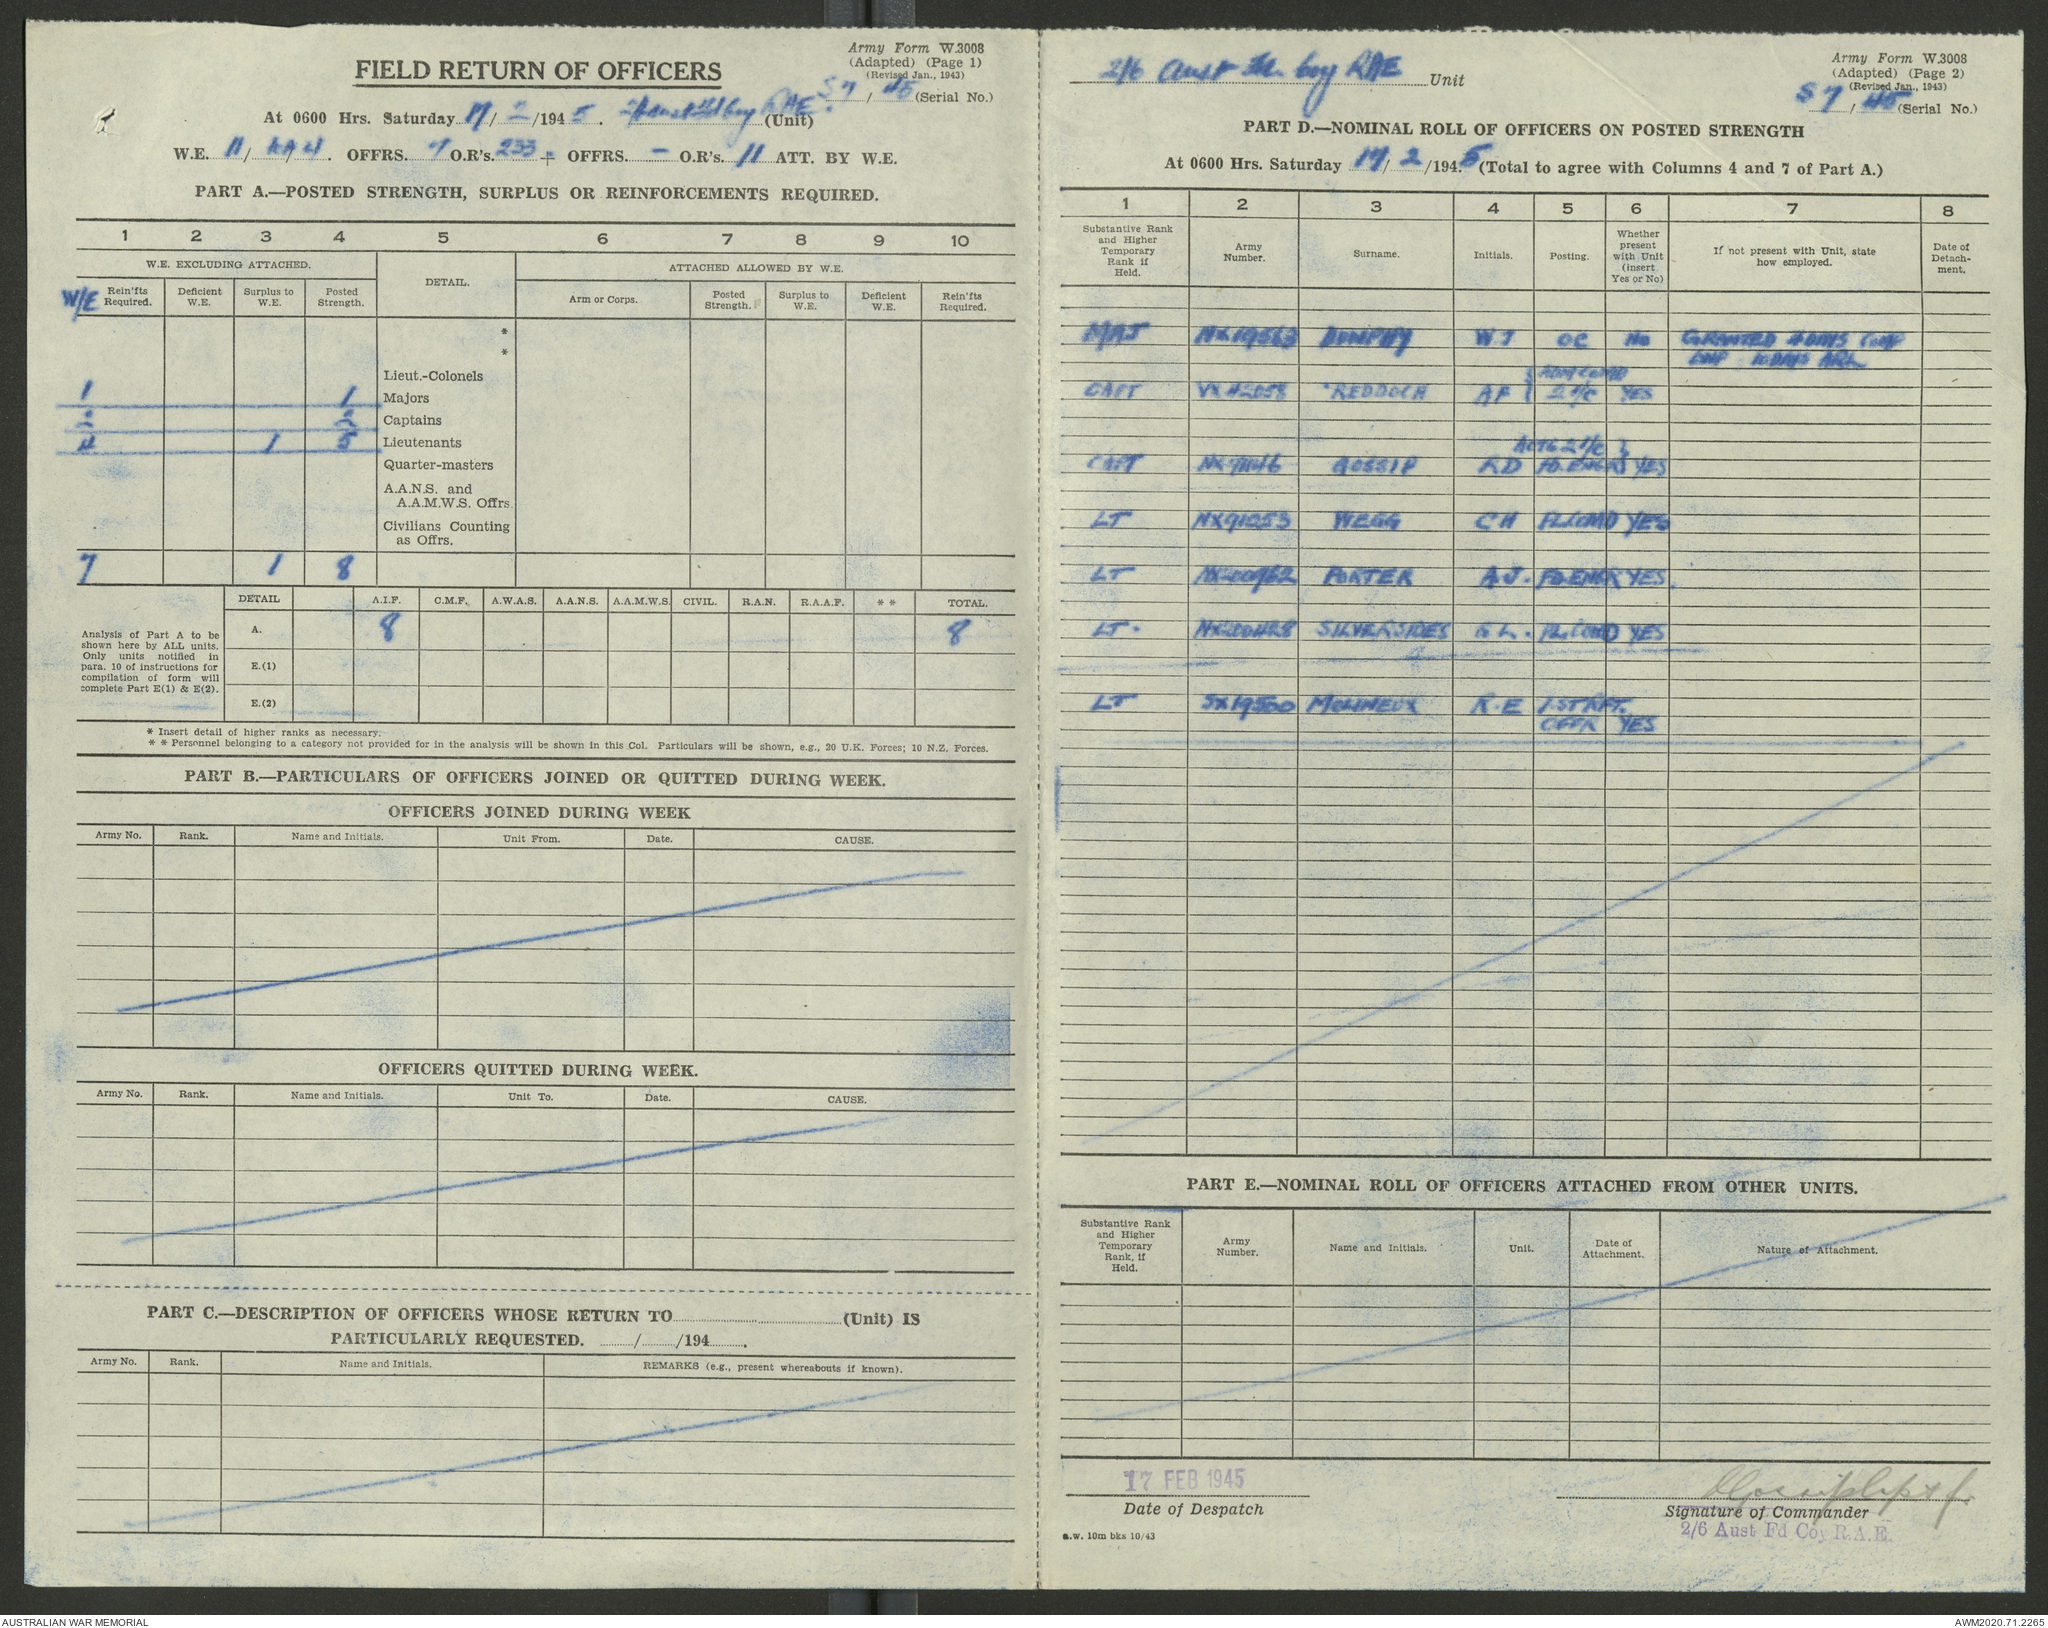 Army Form W.3008
(Adapted) (Page 1)
(Revised Jan., 1943)
FIELD RETURN OF OFFICERS
S7 / 45 (Serial No.)
At 0600 Hrs. Saturday 17/2/1945. 2/6 Aust Fd Coy RAE. (Unit)
W.E. 11/ /4. OFFRS. 7 O.R's. 233 + OFFRS. - O.R's. 11 ATT. BY W.E.
PART A.—POSTED STRENGTH, SURPLUS OR REINFORCEMENTS REQUIRED.
1 2 3 4 5 6 7 8 9 10
W.E. EXCLUDING ATTACHED. DETAIL. ATTACHED ALLOWED BY W.E.
W/E Rein'fts Required. Deficient W.E. Surplus to W.E. Posted Strength. Arm or Corps. Posted Strength. Surplus to W.E. Deficient W.E. Rein'fts Required.
*
*
Lieut.-Colonels
1 1 Majors
2 2 Captains
4 1 5 Lieutenants
Quarter-masters
A.A.N.S. and
A.A.M.W.S. Offrs.
Civilians Counting
as Offrs.
7 1 8
DETAIL A.I.F. C.M.F. A.W.A.S. A.A.N.S. A.A.M.W.S. CIVIL. R.A.N. R.A.A.F. * * TOTAL.
Analysis of Part A to be
shown here by ALL units.
Only units notified in
para. 10 of instructions for
compilation of form will
complete Part E(1) & E(2).
A. 8 8
E.(1)
E.(2)
* Insert detail of higher ranks as necessary.
* * Personnel belonging to a category not provided for in the analysis will be shown in this Col. Particulars will be shown, e.g., 20 U.K. Forces; 10 N.Z. Forces.
PART B.—PARTICULARS OF OFFICERS JOINED OR QUITTED DURING WEEK.
OFFICERS JOINED DURING WEEK
Army No. Rank. Name and Initials. Unit From. Date. CAUSE.
OFFICERS QUITTED DURING WEEK.
Army No. Rank. Name and Initials. Unit To. Date. CAUSE.
PART C.—DESCRIPTION OF OFFICERS WHOSE RETURN TO (Unit) IS
PARTICULARLY REQUESTED. / /194 .
Army No. Rank. Name and Initials. REMARKS (e.g., present whereabouts if known).
Army Form W.3008
(Adapted) (Page 2)
(Revised Jan., 1943)
2/6 Aust Fd. Coy RAE Unit
S7 / 45 (Serial No.)
PART D.—NOMINAL ROLL OF OFFICERS ON POSTED STRENGTH
At 0600 Hrs. Saturday 17/2/1945 (Total to agree with Columns 4 and 7 of Part A.)
1 2 3 4 5 6 7 8
Substantive Rank and Higher Temporary Rank if Held. Army Number. Surname. Initials. Posting. Whether present with Unit (insert Yes or No) If not present with Unit, state how employed. Date of Detachment.
MAJ NX19563 DUNPHY WJ OC No GRANTED 4 DAYS
10 DAYS ARL
CAPT VX42058 REDDOCH AF 2 I/C YES
ACTG 2 I/C
CAPT GOSSIP RD FD.ENGR YES
LT NX91053 WEGG CH PL.COMD YES
LT NX200962 PORTER A.J. FD.ENGR YES.
LT. NX200428 SILVERSIDES G L. PL.COMD YES
LT SX19500 MOLINEUX R.E 1ST RFT.
OFFR YES
PART E.—NOMINAL ROLL OF OFFICERS ATTACHED FROM OTHER UNITS.
Substantive Rank and Higher Temporary Rank, if Held. Army Number. Name and Initials. Unit. Date of Attachment. Nature of Attachment.
17 FEB 1945
Date of Despatch
Signature of Commander
2/6 Aust Fd Coy R.A.E.
a.w. 10m bks 10/43
AUSTRALIAN WAR MEMORIAL
AWM2020.71.2265